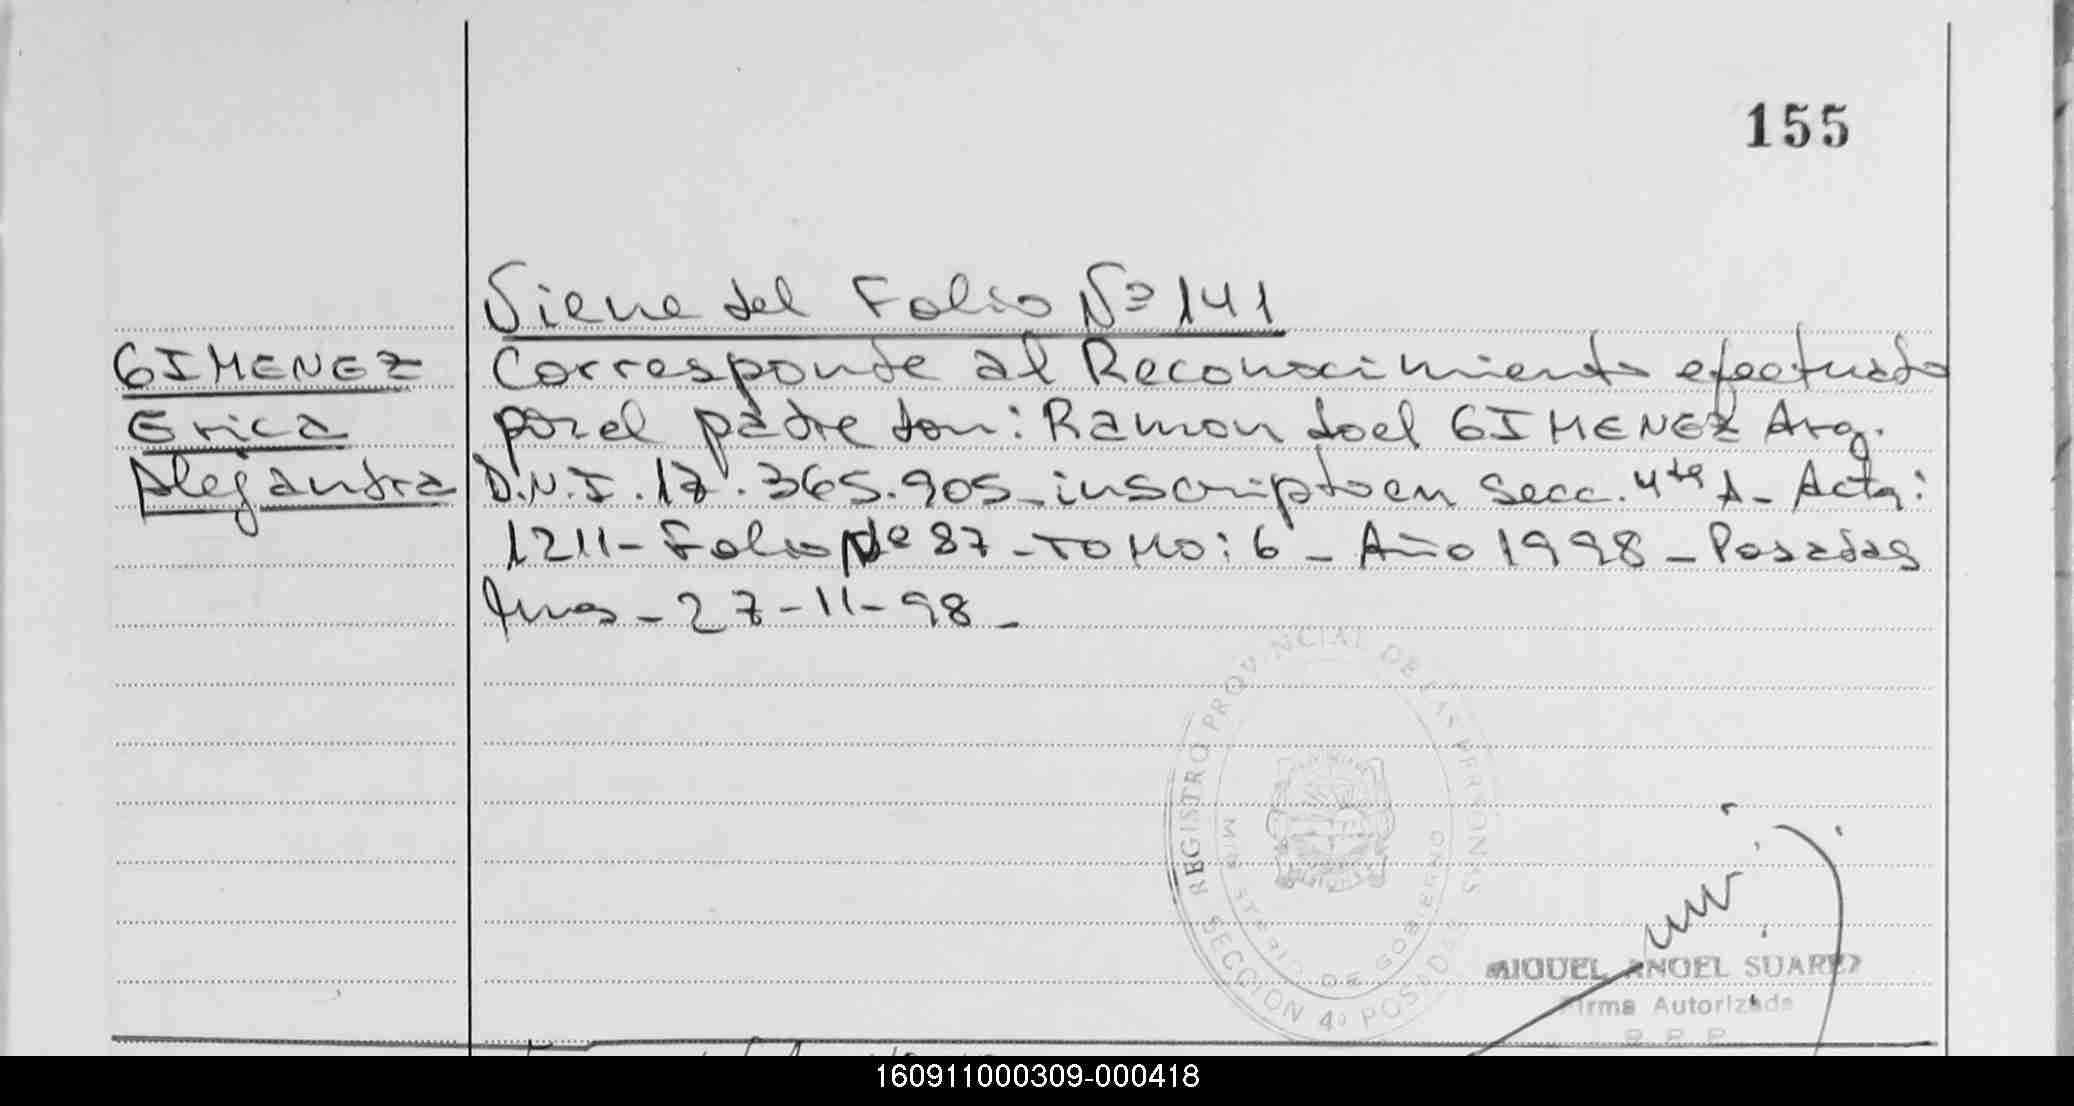 155
Viene del Folio Nº 141
GIMENEZ
Erica
Alejandra
Corresponde al Reconocimiento efectuado
por el padre don: Ramon Joel GIMENEZ Arg.
D.N.I. 17.365.905 - inscripto en Secc. 4ta A - Acta:
1211 - Folio Nº 87 - TOMO: 6 - Año 1998 - Posadas
Mnes - 27-11-98 -
REGISTRO PROVINCIAL DE LAS PERSONAS
MINISTERIO DE GOBIERNO
MISIONES
SECCION 4º POSADAS
MIGUEL ANGEL SUAREZ
Firma Autorizada
R. P. P.
160911000309-000418